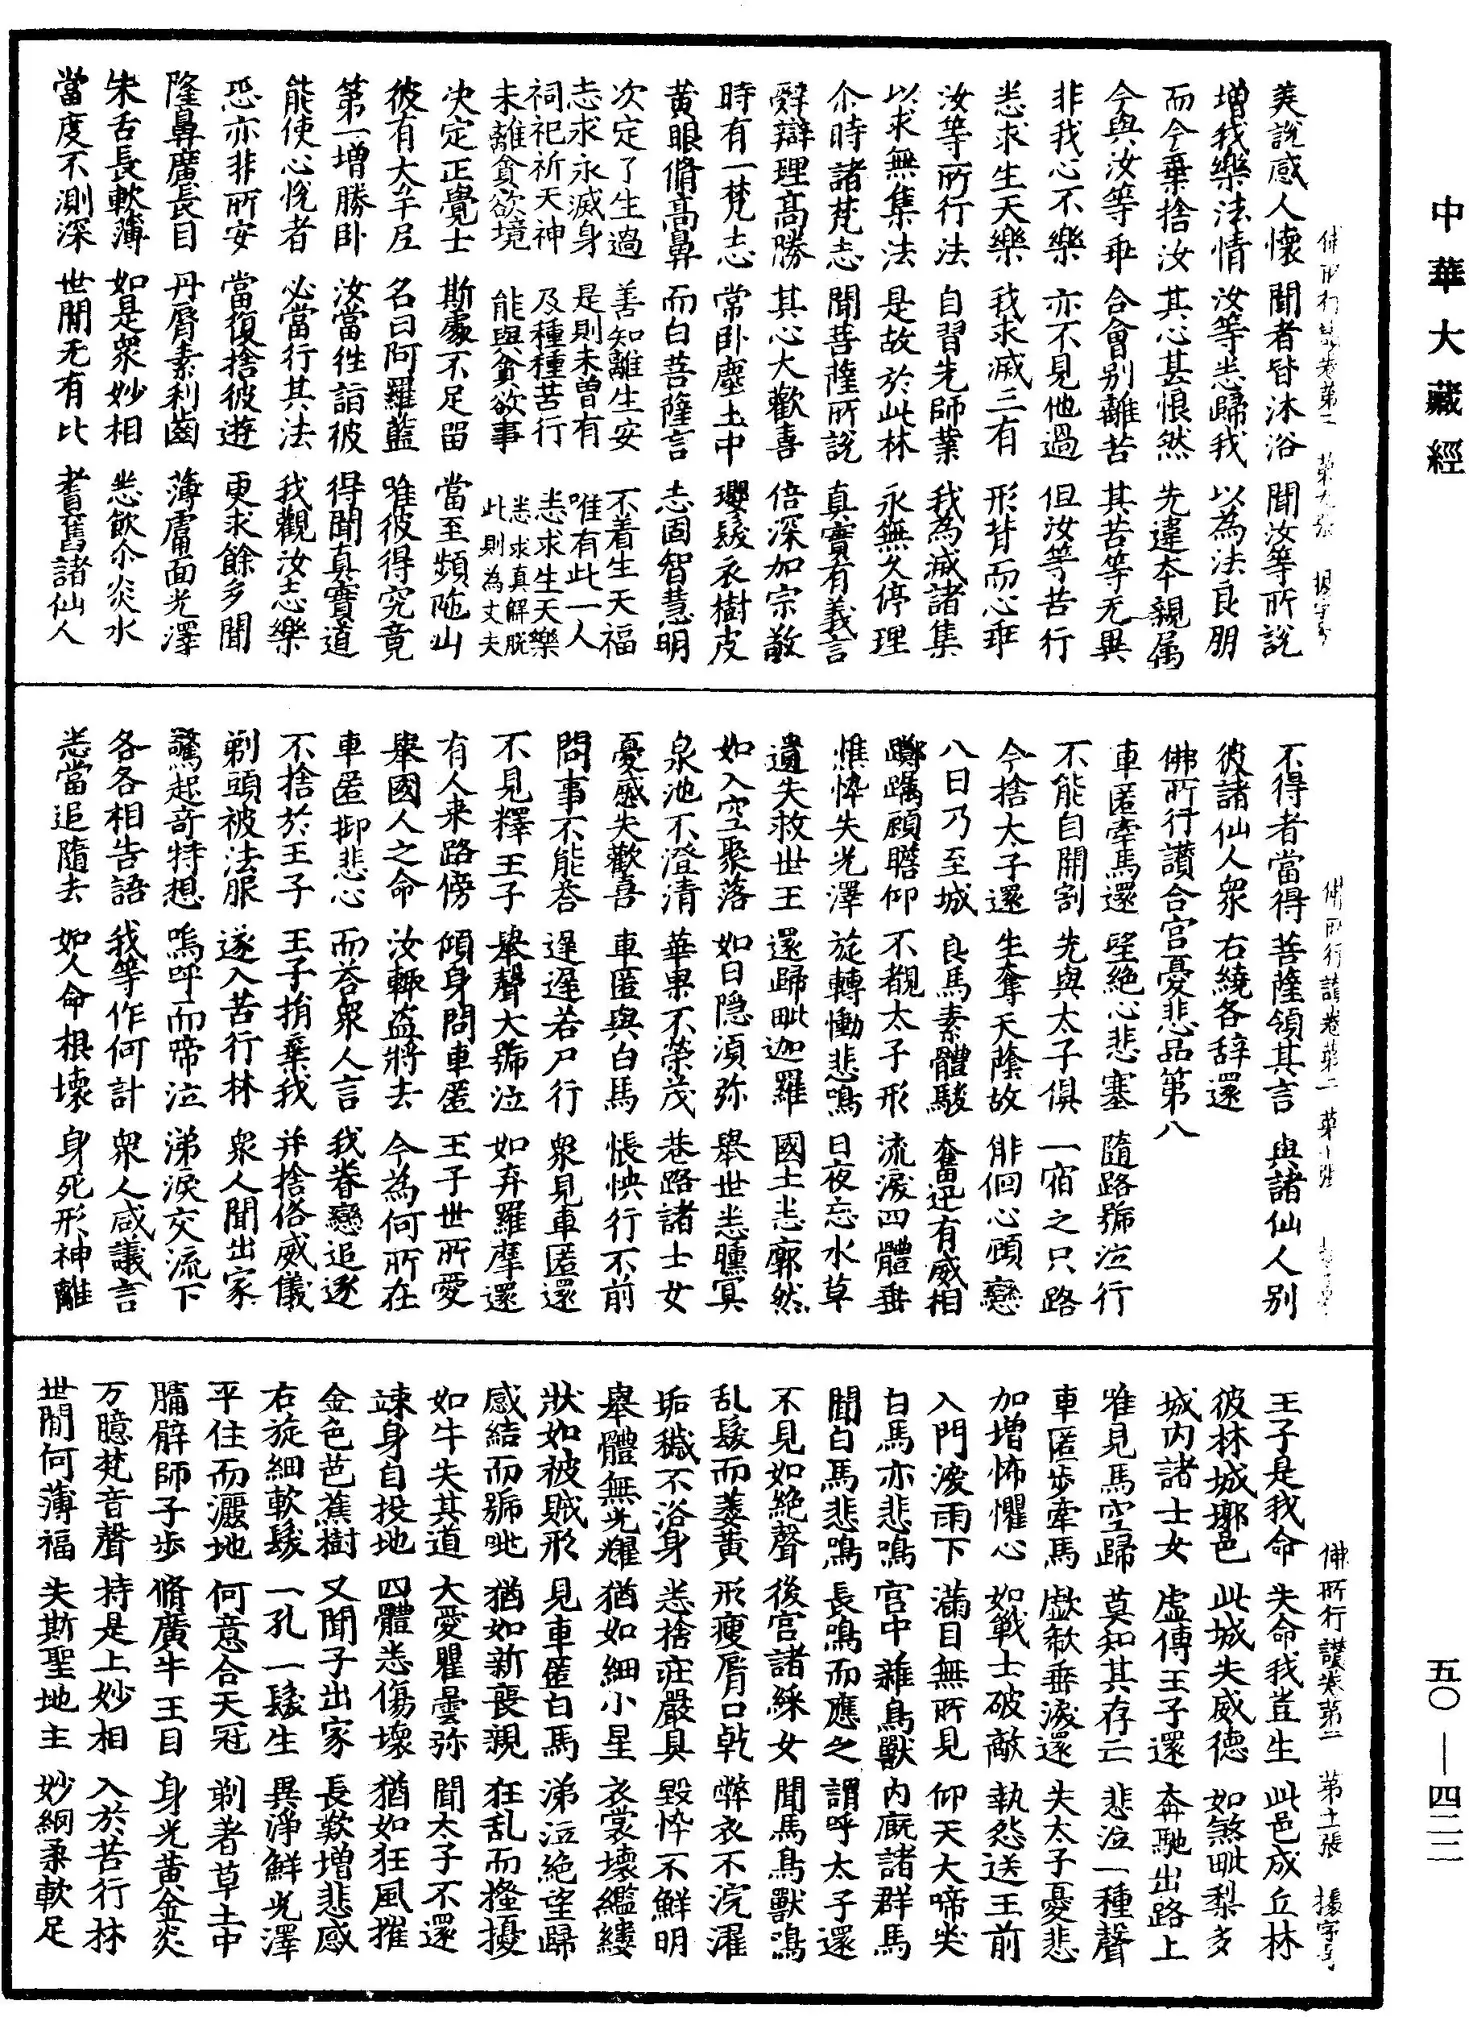 中華大藏經
五〇—四二二
美說感人懷　聞者皆沐浴　聞汝等所說
增我樂法情　汝等悉歸我　以為法良朋
而今棄捨汝　其心甚悢然　先違本親属
今與汝等乖　合會别離苦　其苦等无異
非我心不樂　亦不見他過　但汝等苦行
悉求生天樂　我求滅三有　形背而心乖
汝等所行法　自習先師業　我為滅諸集
以求無集法　是故於此林　永無久停理
尒時諸梵志　聞菩薩所說　真實有義言
辭辯理高勝　其心大歡喜　倍深加宗敬
時有一梵志　常卧塵土中　瓔髮衣樹皮
黄眼脩高鼻　而白菩薩言　志固智慧明
次定了生過　善知離生安　不着生天福
志求永滅身　是則未曽有　唯有此一人
祠祀祈天神　及種種苦行　悉求生天樂
未離貪欲境　能與貪欲事　志求真解脫　此則為丈夫
決定正覺士　斯處不足留　當至頻陁山
彼有大牟尼　名曰阿羅藍　唯彼得究竟
第一增勝卧　汝當徃詣彼　得聞真實道
能使心悅者　必當行其法　我觀汝志樂
恐亦非所安　當復捨彼遊　更求餘多聞
隆鼻廣長目　丹脣素利齒　薄膚面光澤
朱舌長軟薄　如是眾妙相　悉飲尒炎水
當度不測深　世間无有比　耆舊諸仙人
佛所行讃卷第二　第十張
不得者當得　菩薩領其言　與諸仙人别
彼諸仙人眾　右繞各辞還
佛所行讃合宫憂悲品第八
車匿牽馬還　望絕心悲塞　隨路號泣行
不能自開割　先與太子俱　一宿之只路
今捨太子還　生奪天蔭故　俳佪心頋戀
八日乃至城　良馬素體駿　奮迅有威相
躑躅顧瞻仰　不覩太子形　流淚四體垂
憔悴失光澤　旋轉慟悲鳴　日夜忘水草
遺失救世王　還歸毗迦羅　國土悉廓然
如入空聚落　如日隐湏弥　舉世悉曛冥
泉池不澄清　華果不榮茂　巷路諸士女
憂慼失歡喜　車匿與白馬　悵怏行不前
問事不能荅　遅遅若尸行　眾見車匿還
不見釋王子　舉聲大號泣　如弃羅摩還
有人来路傍　傾身問車匿　王子世所愛
舉國人之命　汝輙盗將去　今為何所在
車匿抑悲心　而荅眾人言　我眷戀追逐
不捨於王子　王子捐棄我　并捨俗威儀
剃頭被法服　遂入苦行林　眾人聞出家
驚起竒特想　嗚呼而啼泣　涕淚交流下
各各相告語　我等作何計　眾人咸議言
悉當追隨去　如人命根壞　身死形神離
佛所行讃卷第二　第十一張　㨗字号
王子是我命　失命我豈生　此邑成丘林
彼林城墎邑　此城失威德　如煞毗梨多
城内諸士女　虛傳王子還　奔馳出路上
唯見馬空歸　莫知其存亡　悲泣一種聲
車匿步牽馬　歔欷垂淚還　失太子憂悲
加增怖懼心　如戰士破敵　執怨送王前
入門淚雨下　滿目無所見　仰天大啼哭
白馬亦悲鳴　宫中雜鳥獸　内廐諸群馬
聞白馬悲鳴　長鳴而應之　謂呼太子還
不見如絕聲　後宫諸綵女　聞馬鳥獸鳴
乱髮而萎黄　形瘦脣口乾　弊衣不浣濯
垢穢不浴身　悉捨莊嚴具　毀悴不鮮明
舉體無光耀　猶如細小星　衣裳壞襤縷
狀如被賊形　見車匿白馬　涕泣絕望歸
感結而號咷　猶如新喪親　狂乱而搔擾
如牛失其道　大愛瞿曇弥　聞太子不還
竦身自投地　四體悉傷壞　猶如狂風摧
金色芭蕉樹　又聞子出家　長歎增悲感
右旋細軟髮　一孔一髮生　異淨鮮光澤
平住而灑地　何意合天冠　剃著草土中
牅臂師子步　脩廣牛王目　身光黄金炎
方臆梵音聲　持是上妙相　入於苦行林
世間何薄福　失斯聖地主　妙網柔軟足